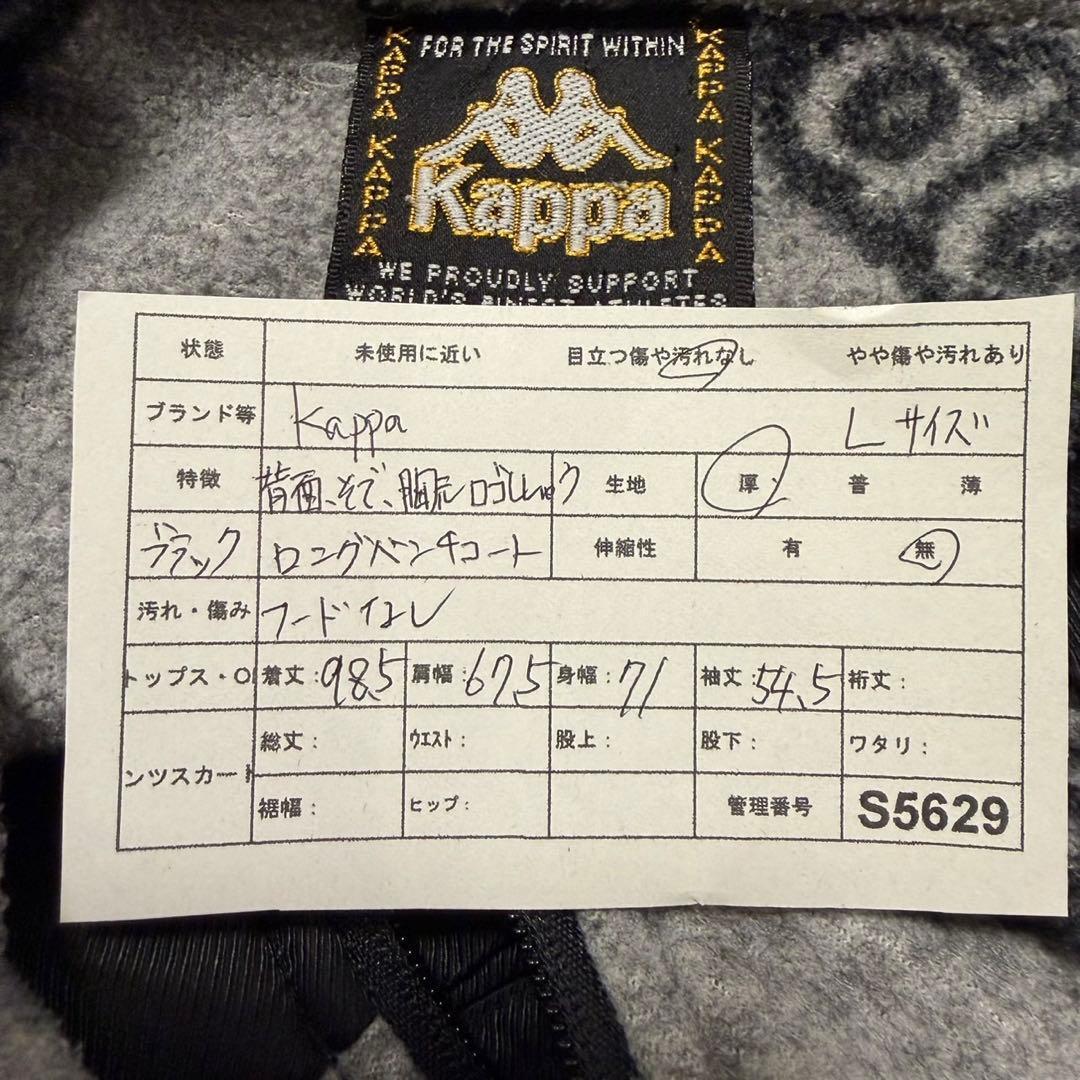 FOR THE SPIRIT WITHIN
KAPPA KAPPA
KAPPA KAPPA
Kappa
WE PROUDLY SUPPORT
WORLD'S FINEST ATHLETES
状態 未使用に近い 目立つ傷や汚れなし やや傷や汚れあり
ブランド等 Kappa Lサイズ
特徴 背面、そで、胸元ロゴ 生地 厚 普 薄
ブラック ロングベンチコート 伸縮性 有 無
汚れ・傷み フードなし
トップス・O 着丈:98.5 肩幅:67.5 身幅:71 袖丈:54.5 裄丈:
ンツスカート 総丈: ウエスト: 股上: 股下: ワタリ:
裾幅: ヒップ: 管理番号 S5629